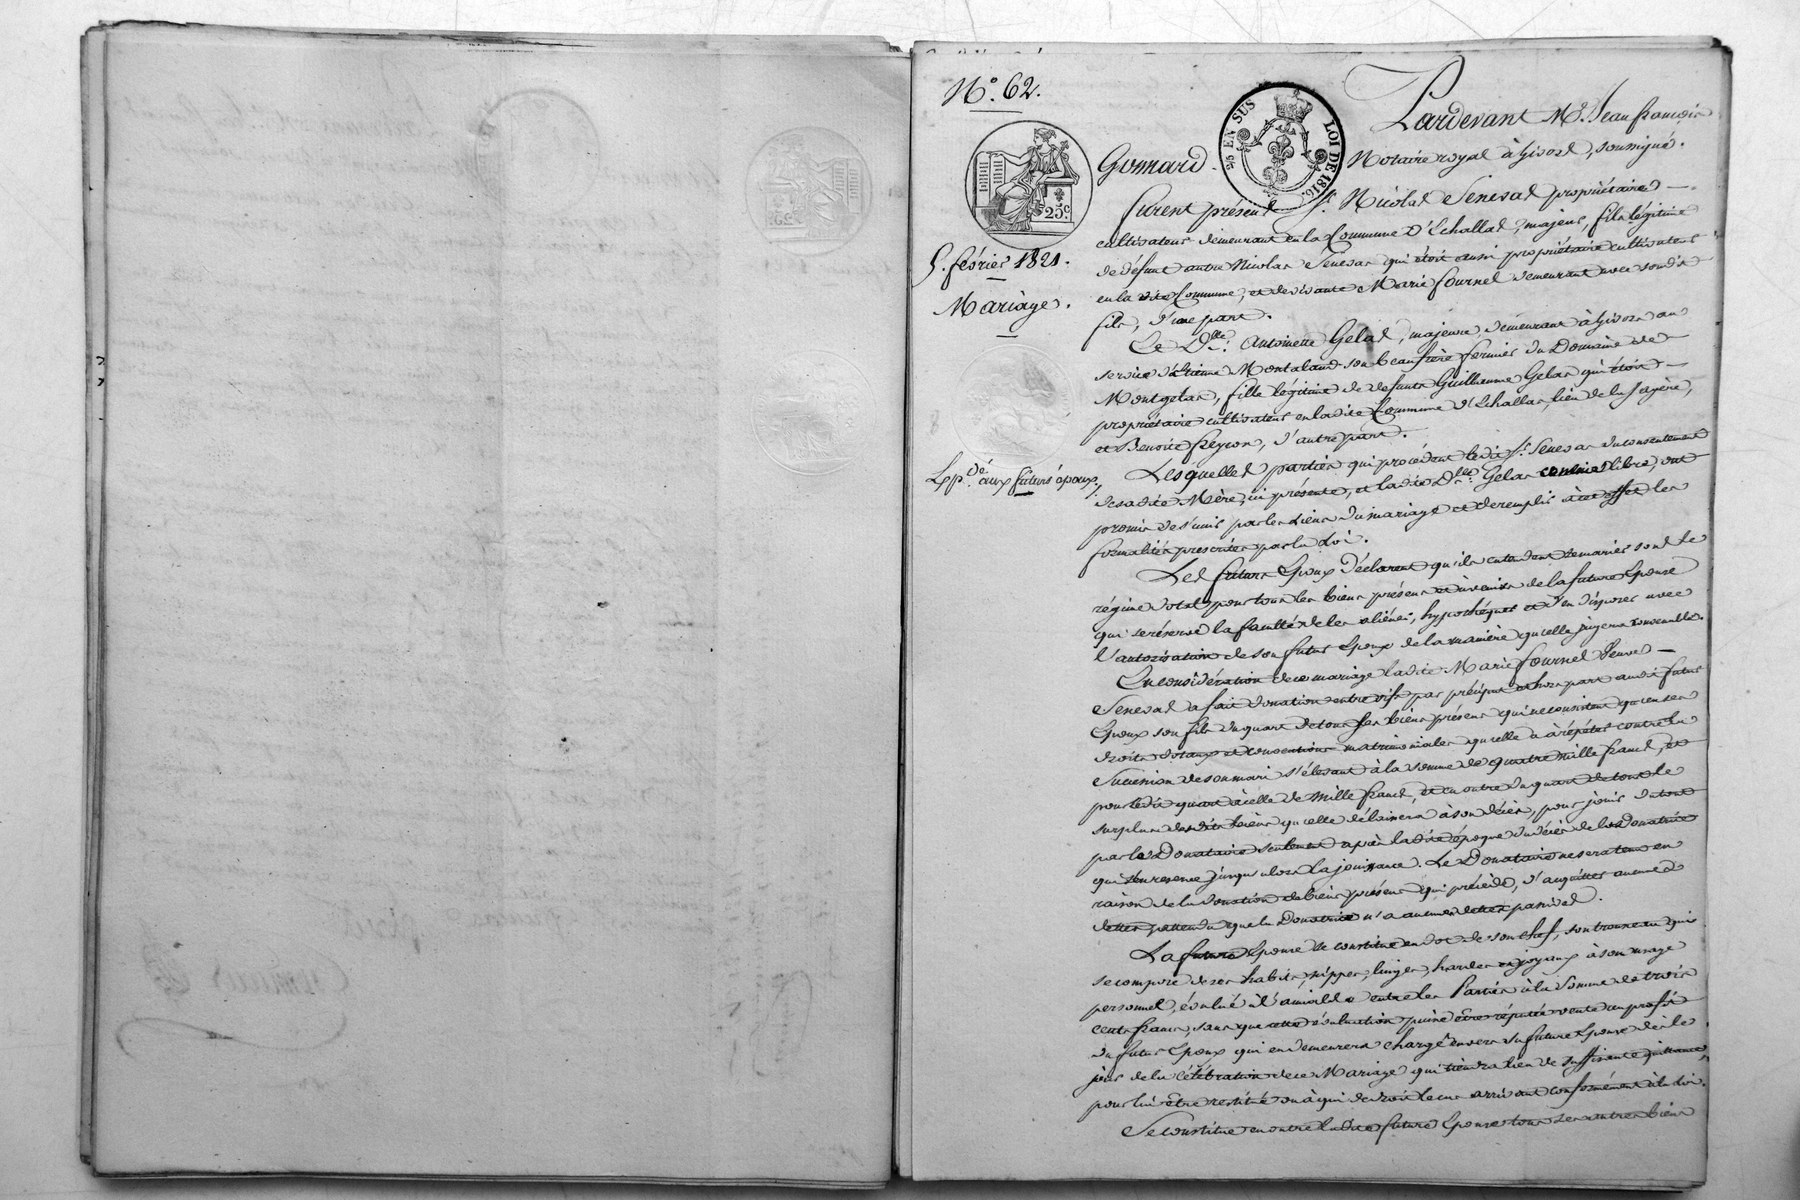 N°. 62.
25 EN SUS LOI DE 1816.
25c.
5. février 1821.
Mariage.
Exp.on dé. aux futurs époux.
Pardevant Me. Jean françois
Gomard. Notaire royal à Givors, soussigné.
furent présens Sr. Nicolas Seneval propriétaire
cultivateur demeurant en la Commune d'Echallas, majeur, fils légitime
de défunt autre Nicolas Seneval qui étoit aussi propriétaire cultivateur
en la dite Commune, et de vivante Marie fournel demeurant avec sondit
fils, d'une part.
Et Dlle. Antoinette Gelas, majeure, demeurant à Givors au
service d'Etienne Montaland son beau frère fermier du Domaine de
Montgelas, fille légitime de defunts Guillaume Gelas qui étoit
propriétaire cultivateur en ladite Commune d'Echallas, lieu de la
et Benoite freycon, d'autre part.
Lesquelles parties qui procèdent ledit Sr. Seneval du consentement
de sadite Mère, ici présente, et ladite Dlle. Gelas comme libre, ont
promis de s'unir par les liens du mariage et de remplir à cet effet les
formalités prescrites par la Loi.
Les futurs Epoux déclarent qu'ils entendent se marier sous le
régime dotal pour tous les biens présens et à venir de la future Epouse
qui se réserve la faculté de les aliéner, hypothéquer et d'en disposer avec
l'autorisation de son futur Epoux de la manière qu'elle jugera convenable.
En considération de ce mariage ladite Marie fournel Veuve
Seneval a fait donation entre vifs par préciput et hors part audit futur
Epoux son fils du quart de tous ses biens présens qui ne consistent qu'en ses
droits dotaux et conventions matrimoniales qu'elle a à répéter contre la
Succession de son mari s'élevant à la somme de quatre mille francs, et
pour ledit quart à celle de Mille francs, et en outre du quart de tout le
surplus desdits biens qu'elle délaissera à son décès, pour jouir du tout
par le Donataire seulement après la dite époque du décès de la Donatrice
qui s'en réserve jusqu'alors la jouissance. Le Donataire ne sera tenu en
raison de la donation de biens présens qui précède, d'acquitter aucunes
dettes attendu que la Donatrice n'a aucunes dettes passives.
La future Epouse se constitue en dot de son chef, son trousseau qui
se compose de ses habits, nippes, linges, hardes et joyaux à son usage
personnel, évalué à l'amiable entre les Parties à la Somme de trois
cents francs, sans que cette évaluation puisse être réputée vente au profit
du futur Epoux qui en demeurera chargé envers sa future Epouse dès le
jour de la célébration de ce Mariage qui tiendra lieu de suffisante quittance,
pour lui être restitué ou à qui de droit le cas arrivant conformément à la loi.
Se constitue en outre ladite future Epouse tous ses autres biens